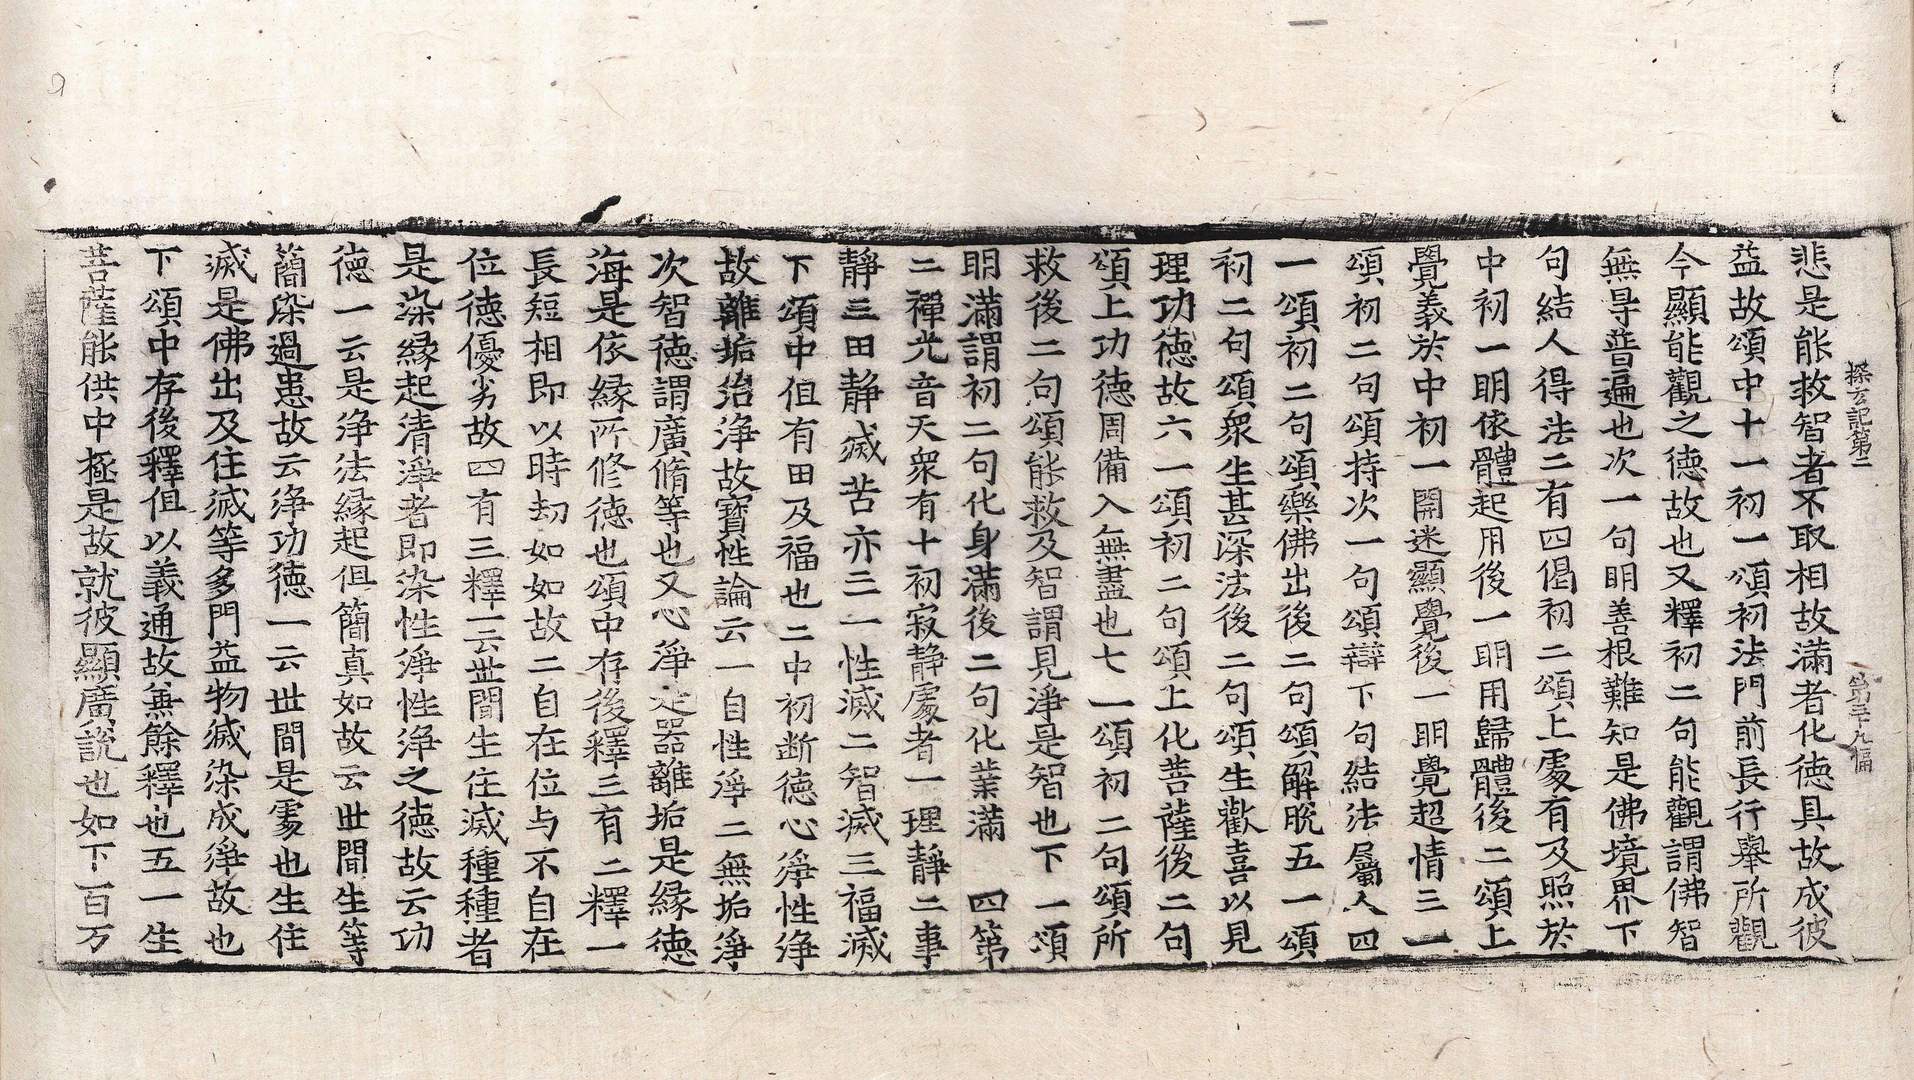 探玄記第二 第三十九幅
悲是能救智者不取相故滿者化德具故成彼
益故頌中十一初一頌初法門前長行舉所觀
今顯能觀之德故也又釋初二句能觀謂佛智
無㝵普遍也次一句明善根難知是佛境界下
句結人得法二有四偈初二頌上處有及照於
中初一明依體起用後一明用歸體後二頌上
覺義於中初一開迷顯覺後一明覺超情三一
頌初二句頌持次一句頌辯下句結法屬人四
一頌初二句頌樂佛出後二句頌解脫五一頌
初二句頌衆生甚深法後二句頌生歡喜以見
理功德故六一頌初二句頌上化菩薩後二句
頌上功德周備入無盡也七一頌初二句頌所
救後二句頌能救及智謂見淨是智也下一頌
明滿謂初二句化身滿後二句化業滿　四第
二禪光音天衆有十初寂静處者一理静二事
静三田静滅苦亦三一性滅二智滅三福滅
下頌中但有田及福也二中初断德心淨性淨
故離垢治淨故寶性論云一自性淨二無垢淨
次智德謂廣脩等也又心淨是器離垢是緣德
海是依緣所修德也頌中存後釋三有二釋一
長短相即以時劫如如故二自在位与不自在
位德優劣故四有三釋一云世間生住滅種種者
是染緣起清淨者即染性淨性淨之德故云功
德一云是淨法緣起但簡真如故云世間生等
簡染過患故云淨功德一云世間是處也生住
滅是佛出及住滅等多門益物滅染成淨故也
下頌中存後釋但以義通故無餘釋也五一生
菩薩能供中極是故就彼顯廣說也如下一百万